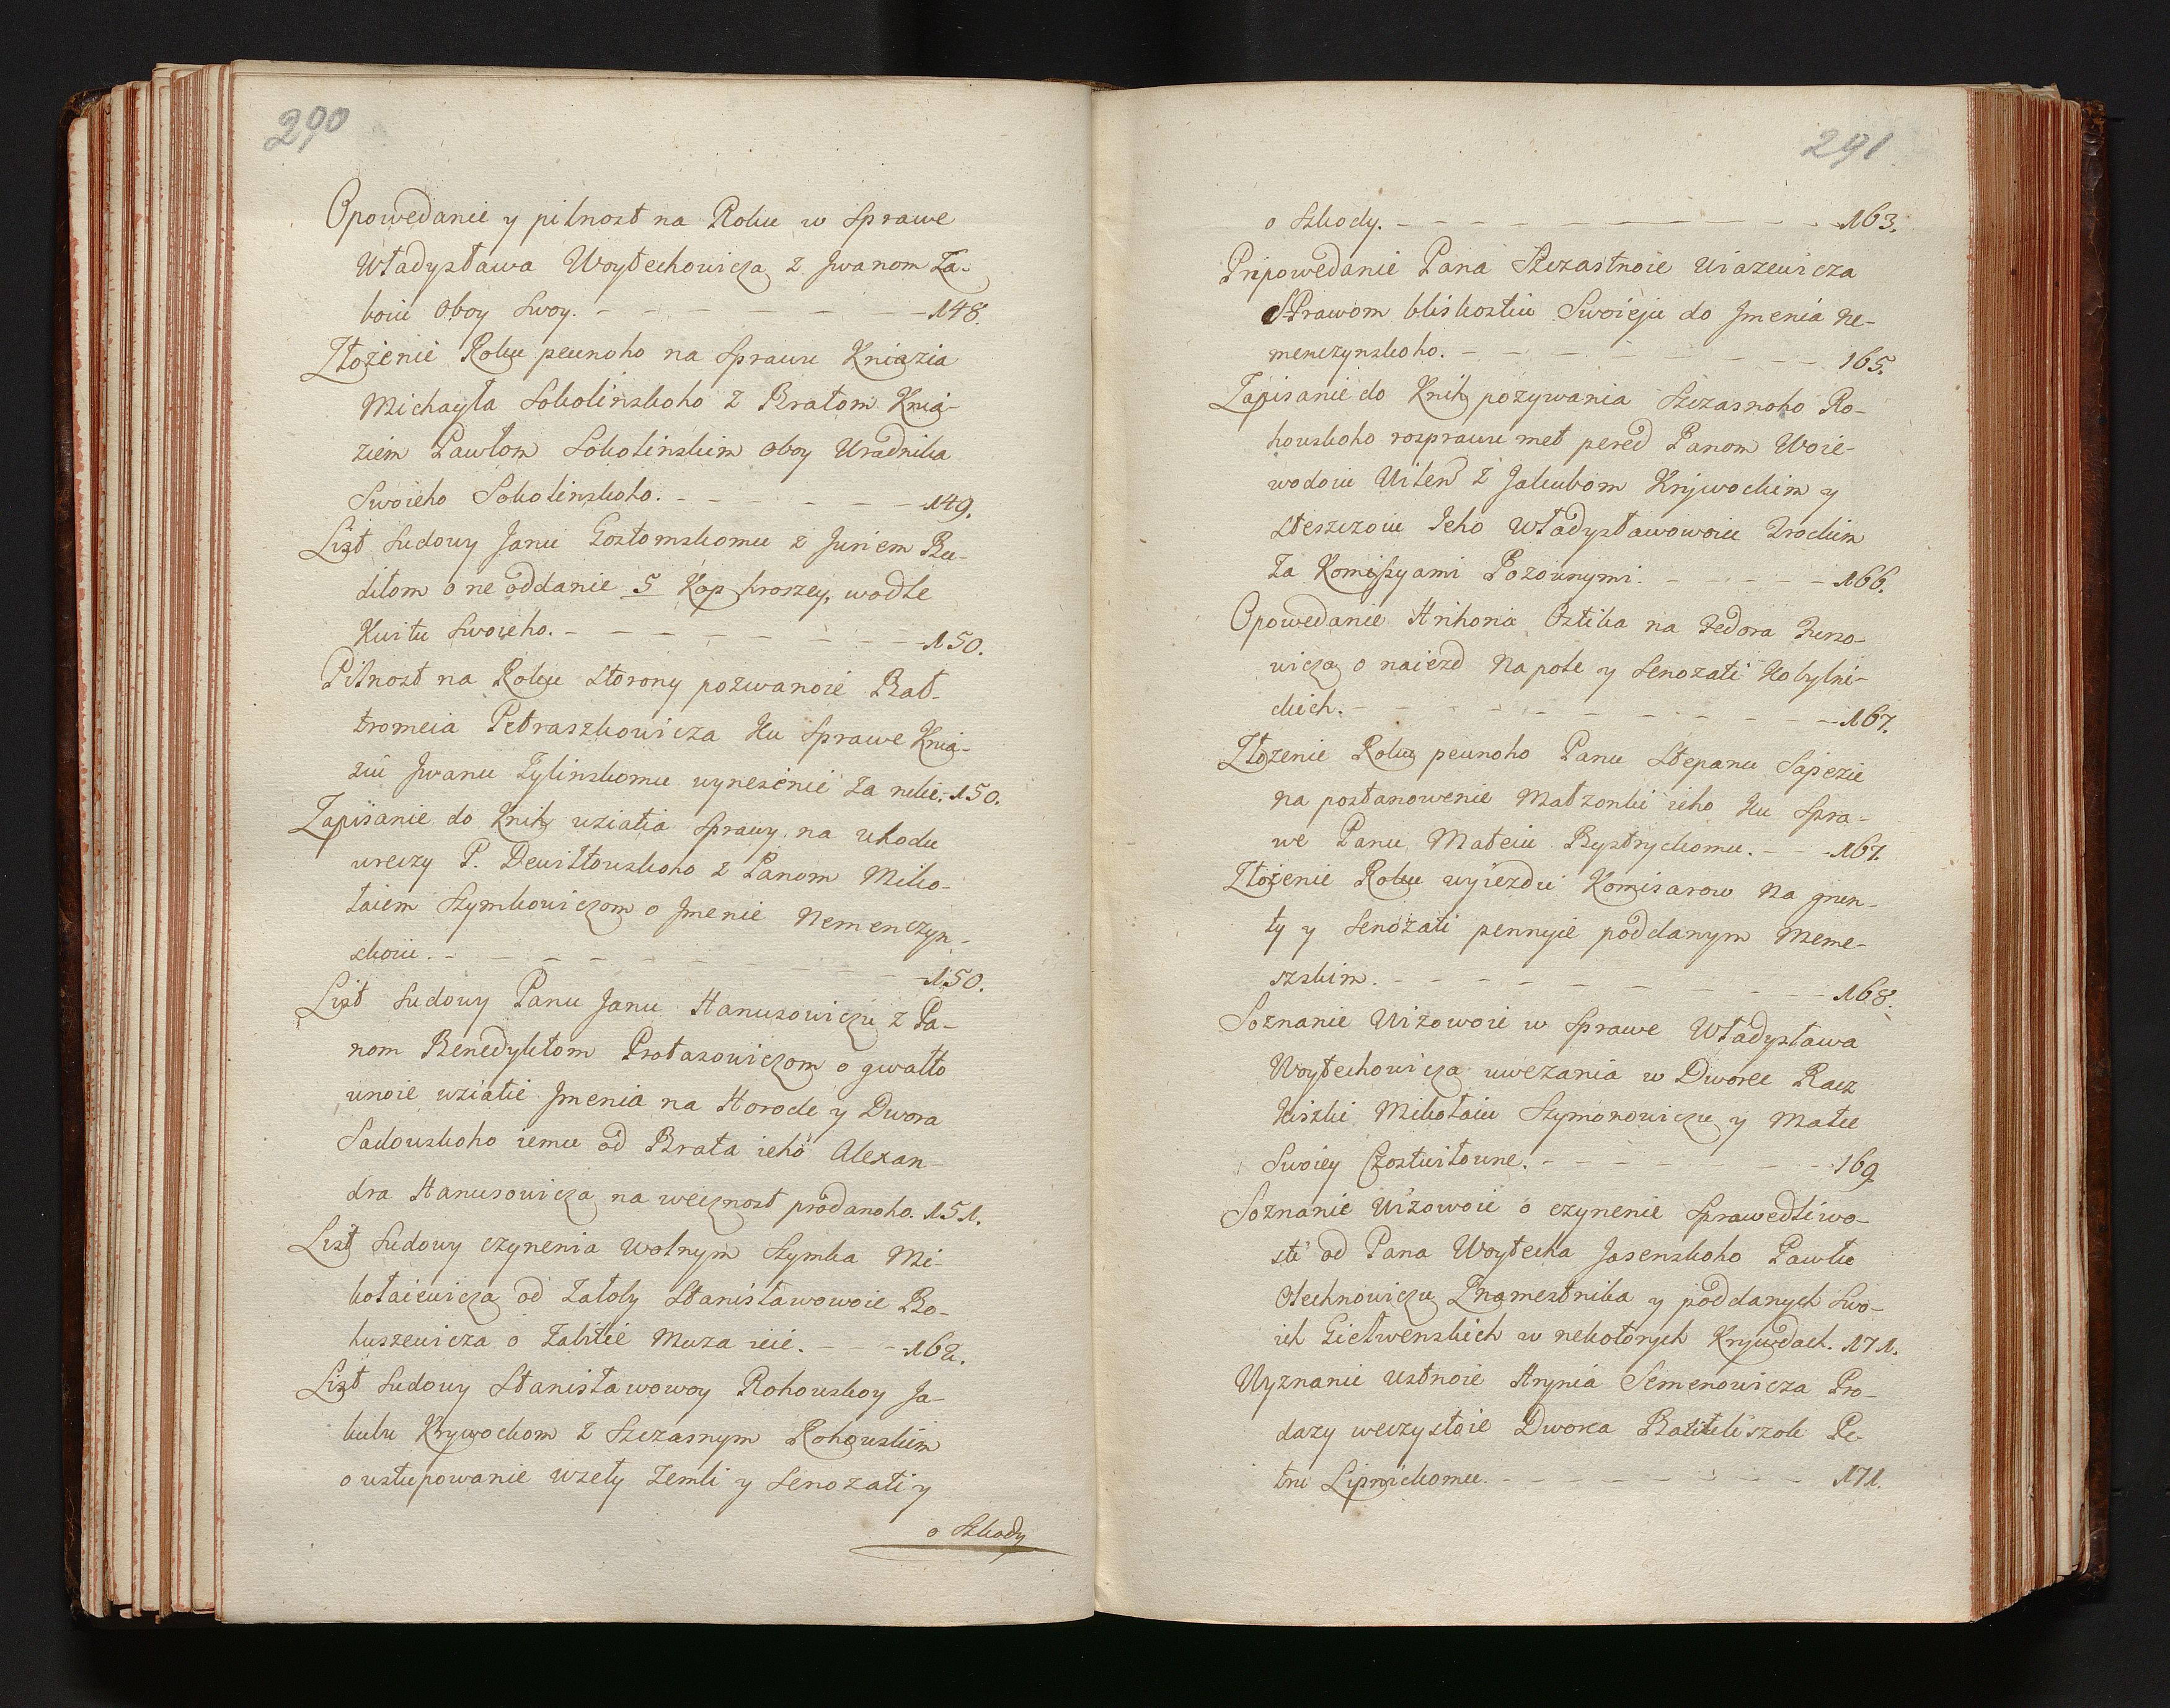 290
Opowedanie y pilnost na Roku w Sprawe
Władysława Woytechowicza z Jwanom Za-
boiu oboy Swoy. - - - - - - - - 148.
Złożenie Roku peunoho na Sprawu Kniazia
Michayła Sokolinskoho z Bratom Knia-
ziem Pawłom Sokolinskim oboy Uradnika
Swoieho Sokolinskoho. - - - - - - 149.
List Sudowy Janu Gostomskomu z Juriem Bu-
diłom o ne oddanie 5 Kop hroszey, wodle
Kwitu Swoieho. - - - - - - - - 150.
Pilnost na Roku Storony pozwanoie Bał-
tromeia Petraszkowicza Ku Sprawe Knia-
ziu Jwanu Zylinskomu wynesenie za ruke. - 150.
Zapisanie do Knih uziatia Sprawy na uhodu
wreczy P. Dewiltowskoho z Panom Miko-
łaiem Szymkowiczom o Jmenie Nemenczyn-
skoiu. - - - - - - - - - 150.
List Sudowy Panu Janu Hanusowiczu z Pa-
nom Benedyktom Protasowiczom o gwałto
unoie wziatie Jmenia na Horode y Dwora
Sadowskoho iemu od Brata ieho Alexan-
dra Hanusowicza na wecznost prodanoho. 151.
List Sudowy czynenia wolnym Szymka Mi-
kołaiewicza od Załoby Stanisławowoie Bo-
huszewicza o Zabitie Muza ieie. - - - 162.
List Sudowy Stanisławowoy Rohowskoy Ja-
kubu Krywockom z Szczasnym Rohowskim
o ustupowanie wzety Zemli y Senozati y
o Szkody
291
o Szkody. - - - - - - - - - 163.
Pripowedanie Pana Szczastnoie Uiazewicza
S Prawom bliskostiu Swoieju do Jmenia Ne-
menczynskoho. - - - - - - - - 165.
Zapisanie do Knih pozywania Szczasnoho Ro-
howskoho rosprawu met pered Panom Woie-
wodoiu Uilen z Jakubom Krywockim y
steszczoiu Jeho Władysławowoiu Trockim
Za Komissyami Pozounymi. - - - - - 166.
Opowedanie Hrihoria Ostika na Fedora Jurso-
wicza o naiezd na pole y Senozati Kobylni-
ckich. - - - - - - - - - - 167.
Złożenie Roku peunoho Panu Stepanu Sapezie
na postanowenie Małzonki ieho Ku Spra-
we Panu Mateiu Bystryckomu. - - - 167.
Złożenie Roku wyiezdu Komisarow na grun-
ty y Senożati pennyie poddanym Meme-
szskim. - - - - - - - - - 168.
Soznanie Uiżowoie w Sprawe Władysława
Woytechowicza uwezania w Dworec Racz
kiszki Mikołaiu Szymonowiczu y Matce
Swoiey Czostwitowne. - - - - - - 169
Soznanie Uiżowoie o czynenie Sprawedliwo-
sti od Pana Woytecha Jasenskoho Pawlu
Olechnowiczu Znamestnika y poddanych Swo-
ich Gietwenskich w nekotorych Krywdach. 171.
Wyznanie ustnoie Hrynia Semenowicza Pro-
dazy weczystoie Dworca Batiteliszok Pe-
tru Lipnickomu. - - - - - - - - 171.